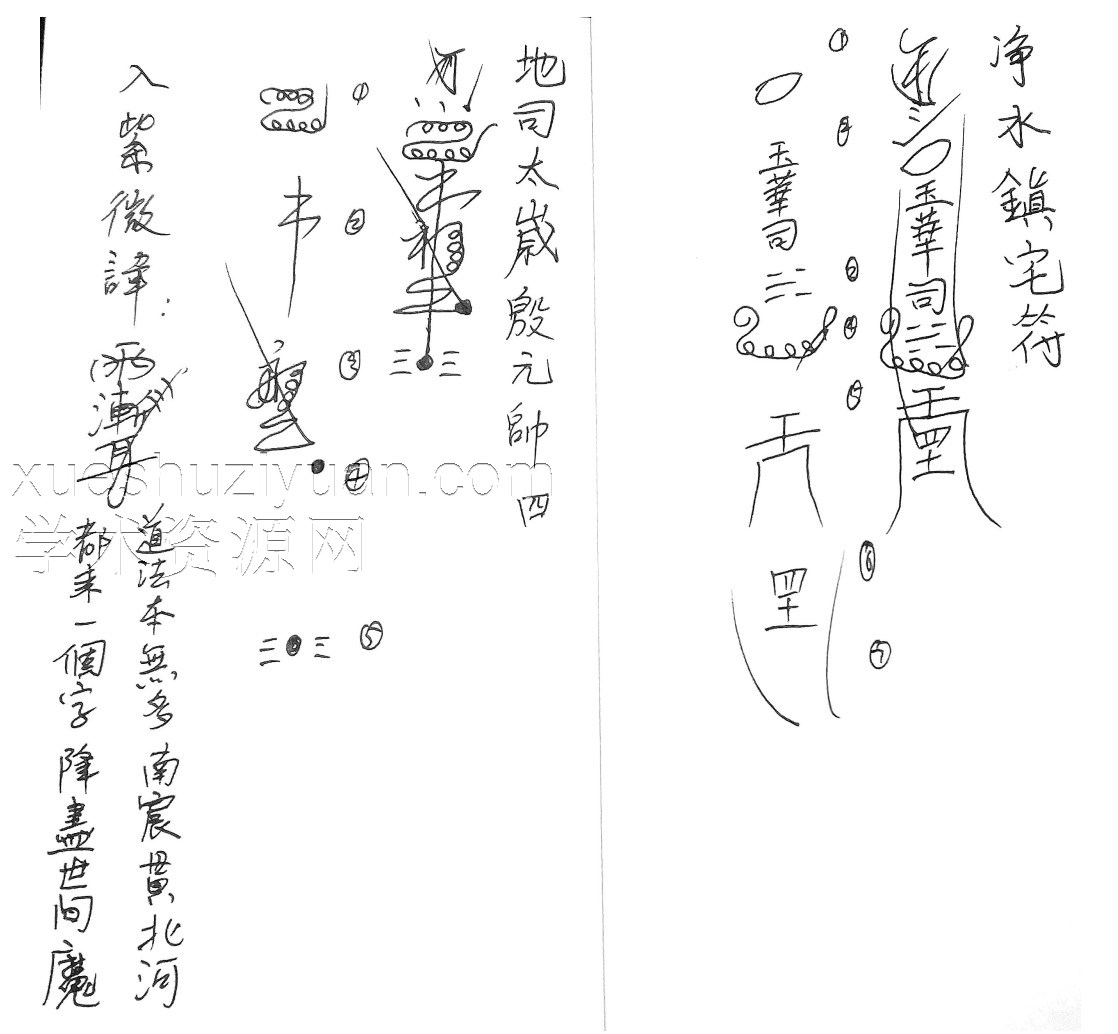 净水鎮宅符
玉華司
罡
①
玉華司
②
④
罡
⑥
⑦
地司太歲殷元帥四
①
②
③
④
⑤
入紫微諱：
道法本無多 南宸貫北河
都來一個字 降盡世间魔
xueshuziyuan.com
学术资源网